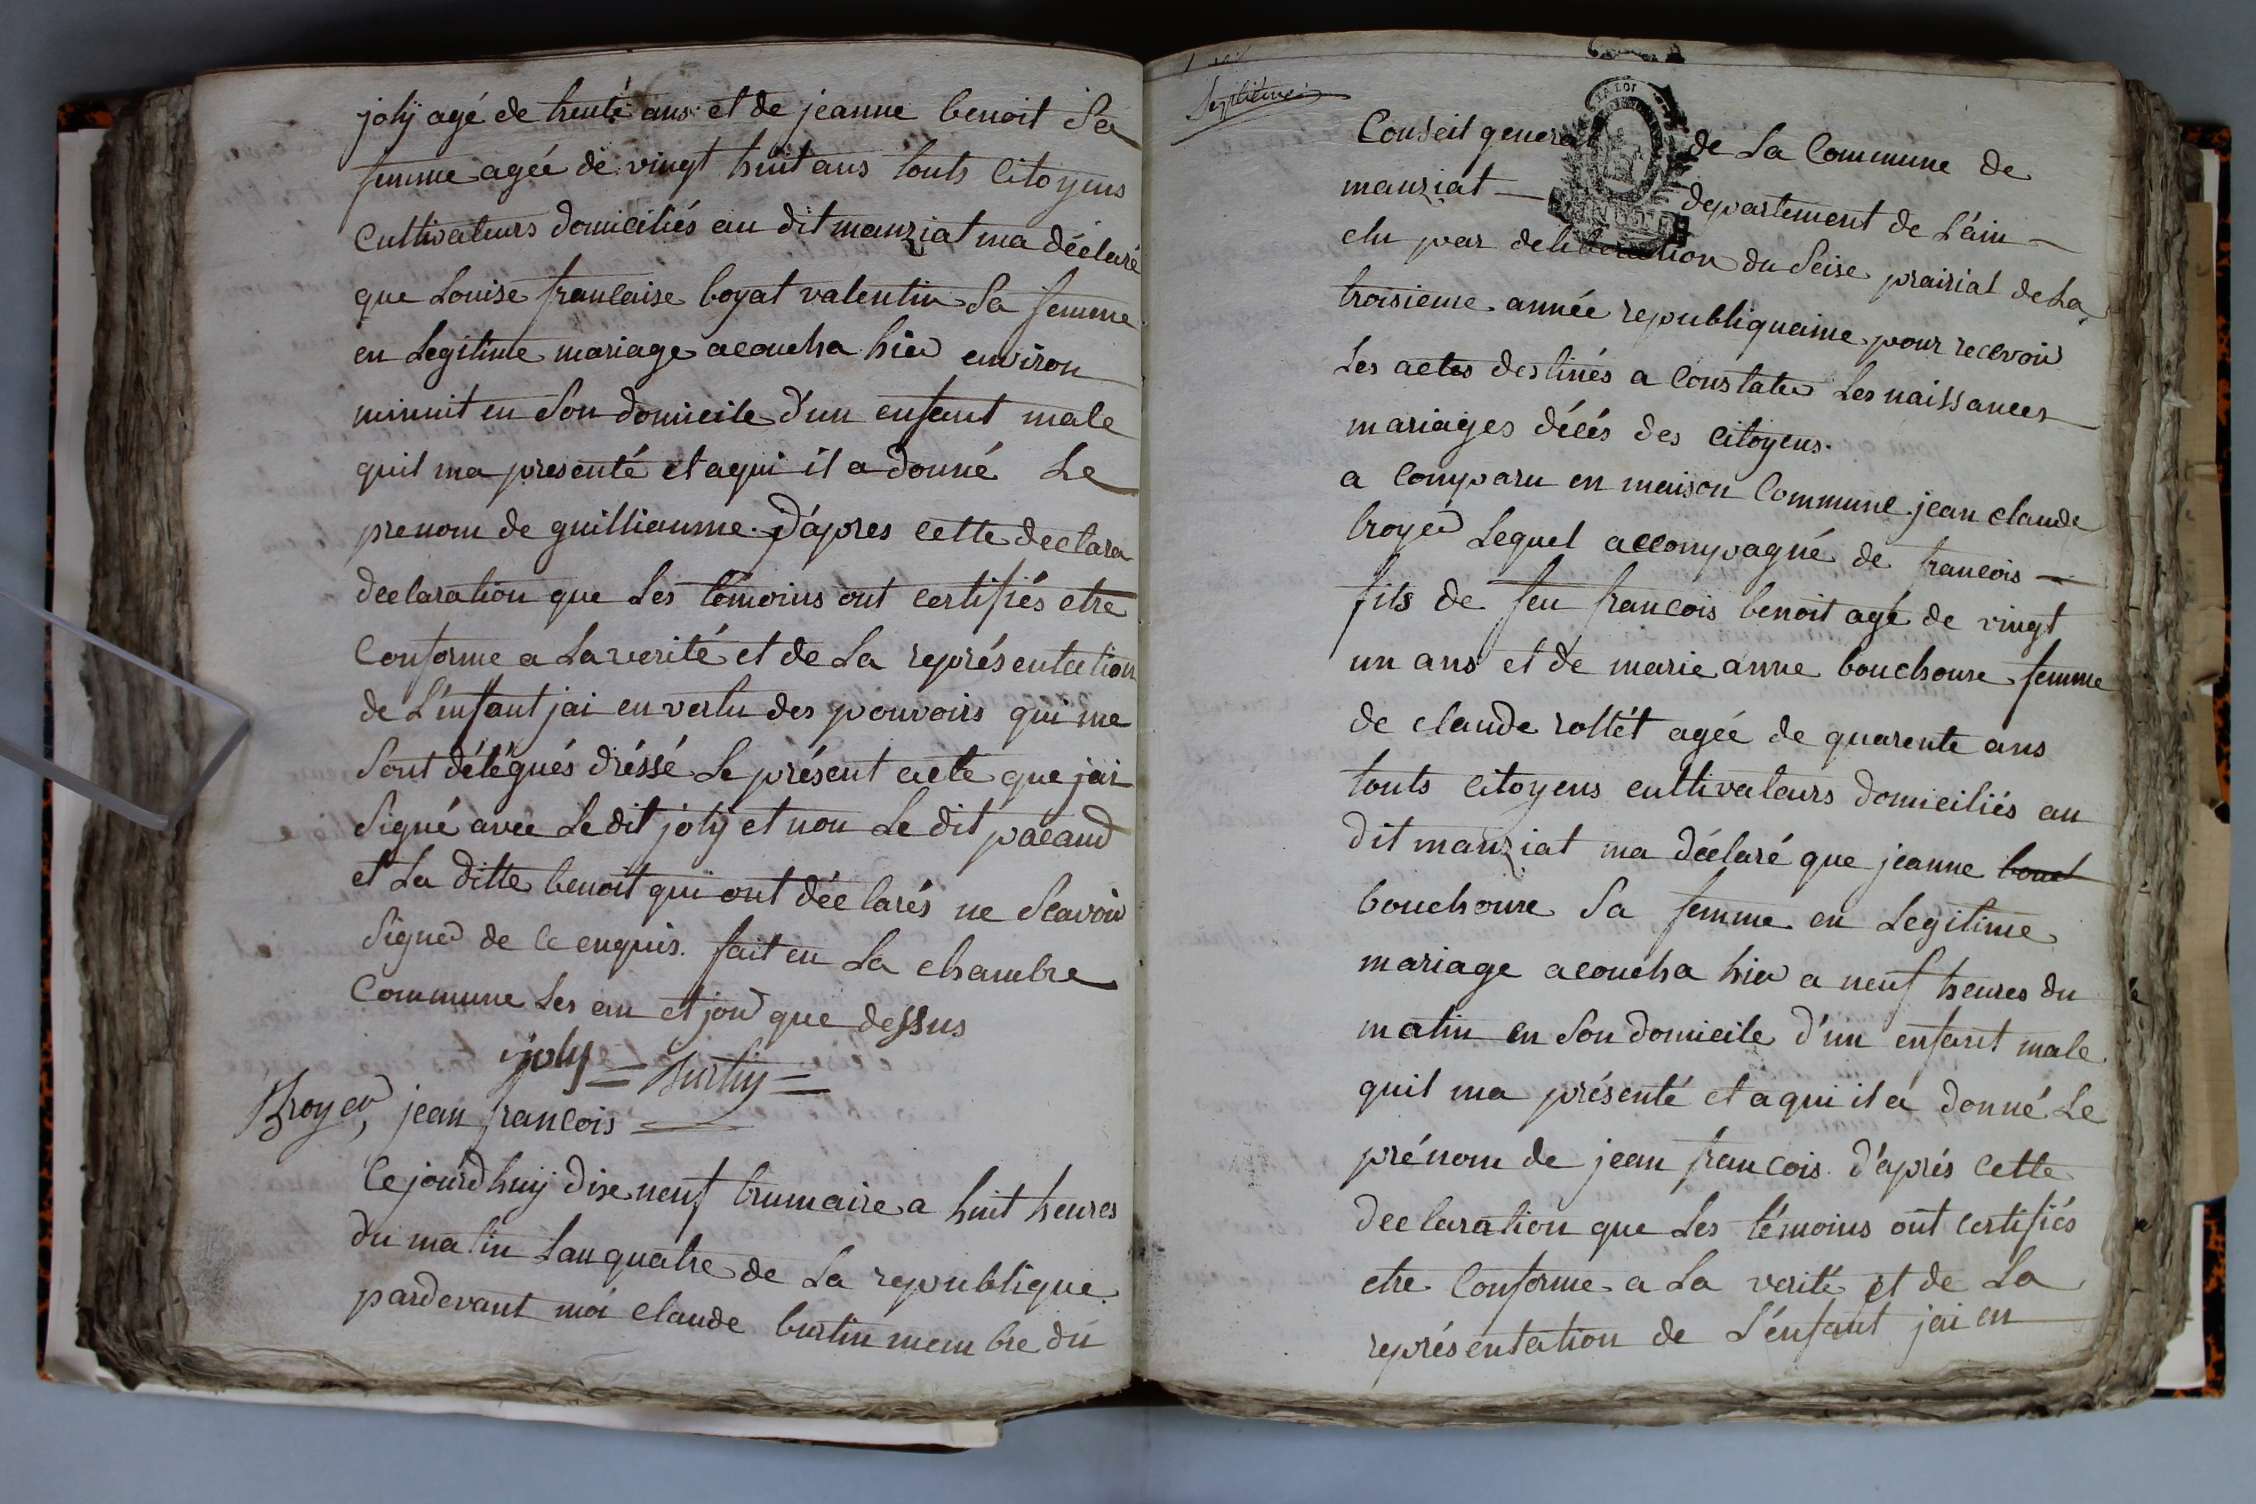 joly agé de trente ans et de jeanne benoit Sa
femme agée de vingt huit ans touts Citoyens
Cultivateurs domiciliés au dit manziat ma déclaré
que Louise francaise boyat valentin Sa femme
en Legitime mariage acoucha hier environ
minuit en Son domicile d'un enfant male
quil ma presenté et aqui il a donné Le
prenom de guilliaume. D'apres cette declara
declaration que Les témoins ont certifiés etre
Conforme a La verité et de La représentation
de L'enfant jai en vertu des pouvoirs qui me
Sont délégués dréssé Le présent acte que jai
Signé avec Le dit joly et non Le dit pacaud
et La ditte benoit qui ont déclarés ne Scavoir
Signer de Ce enquis. fait en La chambre
Commune Les an et jour que dessus
joly = burtin =
Broyer, jean francois
Cejourdhuy dixe neuf brumaire a huit heures
du matin Lan quatre de La republique
pardevant moi Claude burtin membre du
Septieme
LA LOI
Conseil general de La Commune de
manziat — departement de L'ain —
elu par deliberation du Seise prairial de La
troisieme année republiquaine pour recevoir
Les actes destinés a Constater Les naissances
mariages décés des Citoyens.
a Comparu en maison Commune jean claude
broyer Lequel accompagné de francois —
fils de feu francois benoit agé de vingt
un ans et de marie anne bouchoure femme
de claude rollét agée de quarente ans
touts Citoyens cultivateurs domiciliés au
dit manziat ma déclaré que jeanne bouch
bouchoure Sa femme en Legitime
mariage acoucha hier a neuf heures du
matin en Son domicile d'un enfant male
quil ma présenté et aqui il a donné Le
prénom de jean francois. d'aprés Cette
declaration que Les témoins ont certifiés
etre Conforme a La verité et de La
représentation de L'enfant jai en